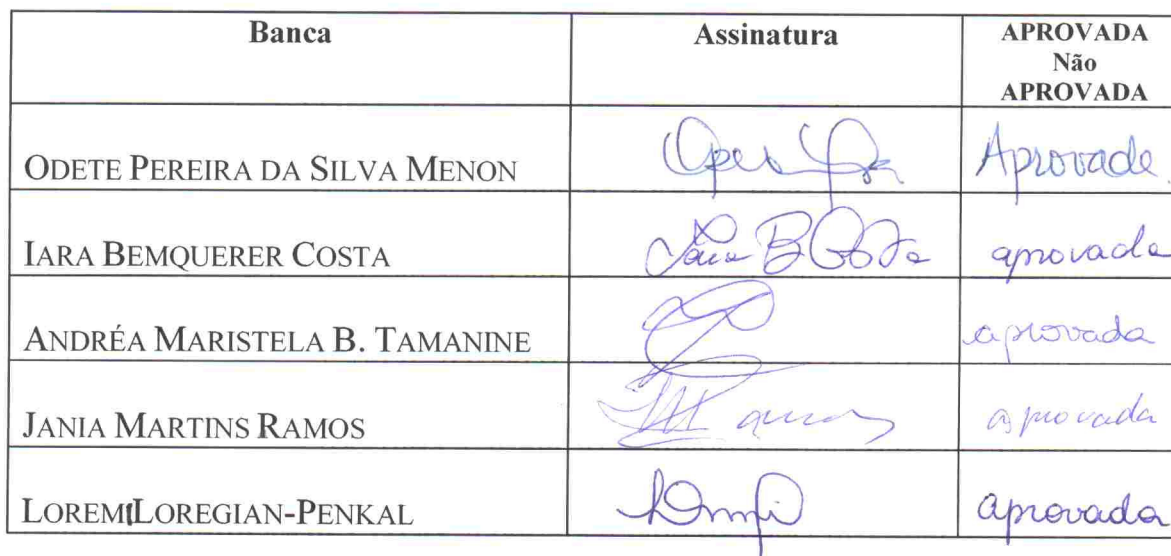 Banca Assinatura APROVADA
Não
APROVADA
ODETE PEREIRA DA SILVA MENON Aprovada.
IARA BEMQUERER COSTA Iara B Costa aprovada
ANDRÉA MARISTELA B. TAMANINE aprovada
JANIA MARTINS RAMOS JMRamos aprovada
LOREMI LOREGIAN-PENKAL aprovada